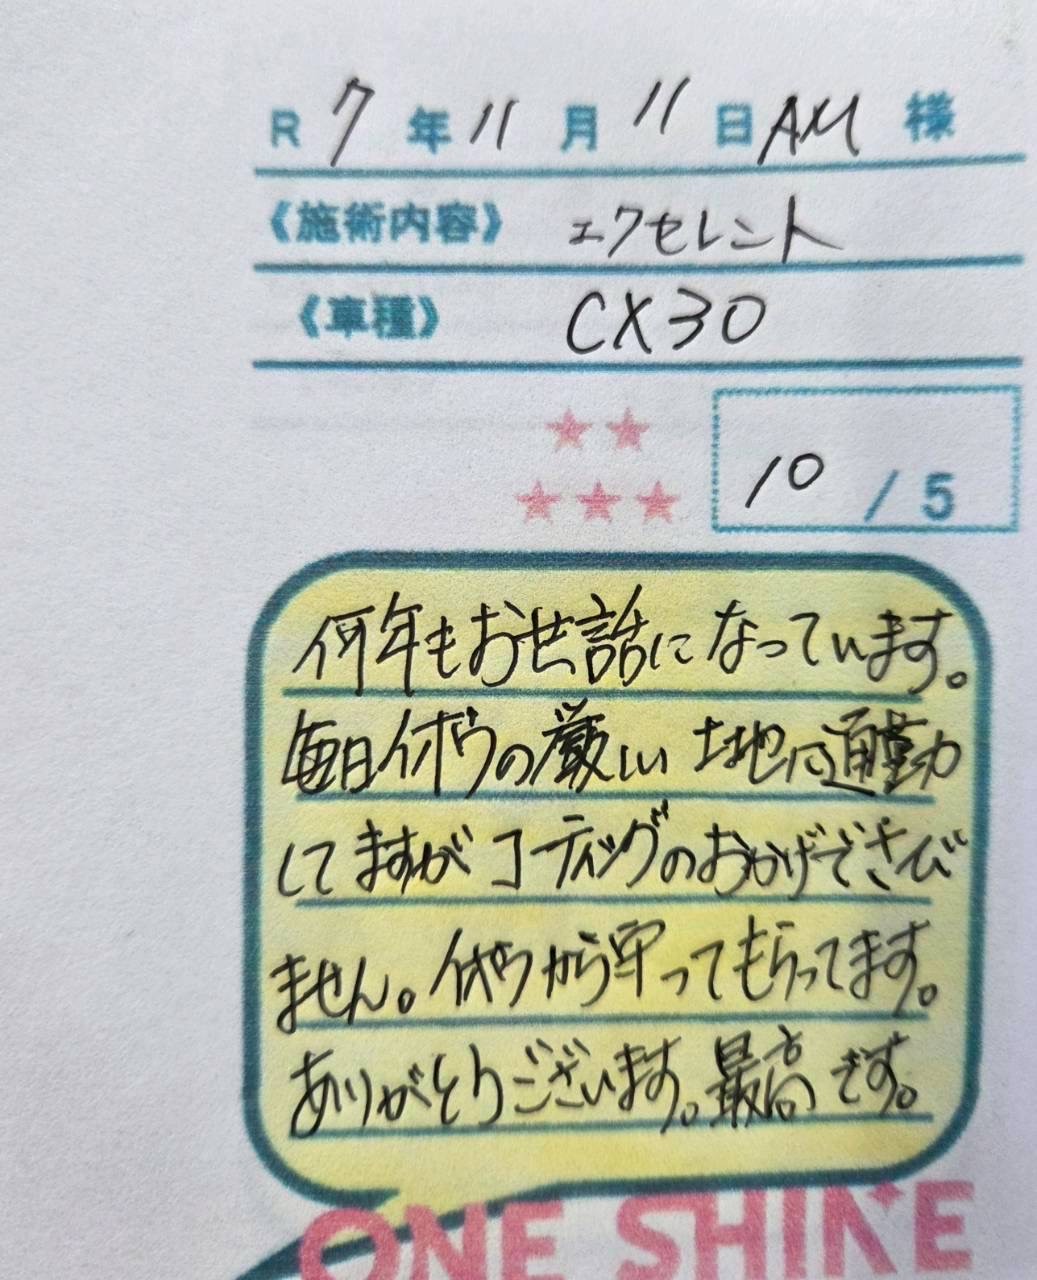 R 7年11月11日 AM 様
《施術内容》 エクセレント
《車種》 CX30
10 / 5
何年もお世話になっています。
毎日イオウの厳しい土地に通勤
してますがコーティングのおかげでさび
ません。イオウから守ってもらってます。
ありがとうございます。最高です。
ONE SHINE